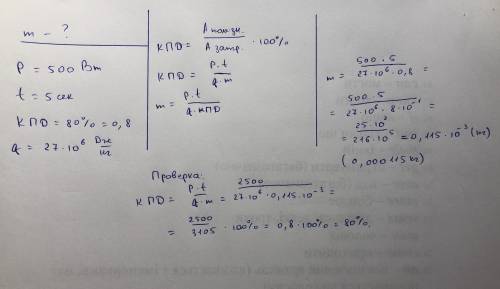 m - ?
P = 500 Вт
t = 5 сек
КПД = 80% = 0,8
q = 27·10⁶ Дж/кг
КПД = A полезн. / A затр. · 100%
КПД = P·t / q·m
m = P·t / q·КПД
m = 500·5 / 27·10⁶·0,8 =
= 500·5 / 27·10⁶·8·10⁻¹ =
= 25·10² / 216·10⁵ = 0,115·10⁻³ (кг)
(0,000115 кг)
Проверка:
КПД = P·t / q·m = 2500 / 27·10⁶·0,115·10⁻³ =
= 2500 / 3105 · 100% = 0,8·100% = 80%.